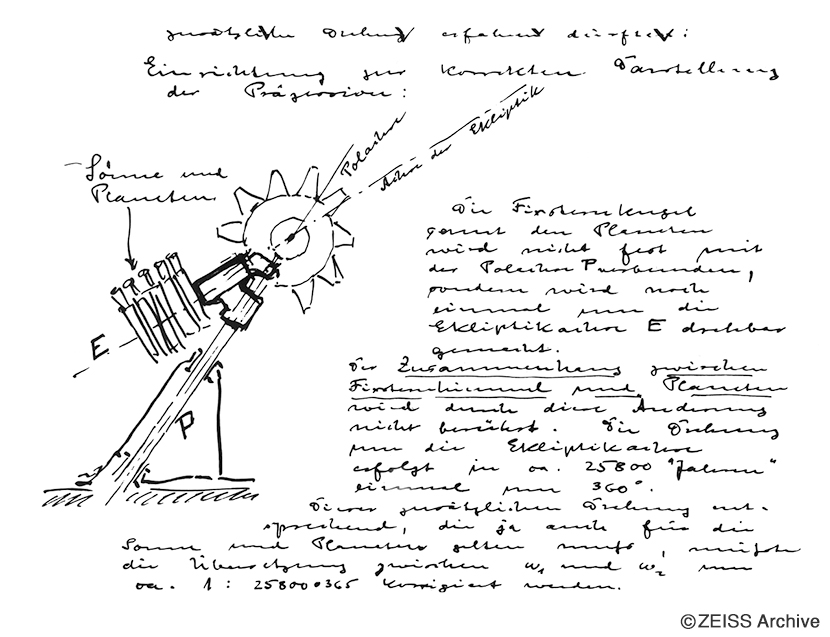 zusätzliche Drehung erfahren dürften:
Einrichtung zur korrekten Darstellung
der Präzession:
Polachse
Achse der Ekliptik
Sonne und
Planeten
Die Fixsternkugel
samt den Planeten
wird nicht fest mit
der Polachse P verbunden,
sondern wird noch
einmal um die
Ekliptikachse E drehbar
gemacht.
Der Zusammenhang zwischen
Fixsternhimmel und Planeten
wird durch diese Änderung
nicht berührt. Die Drehung
um die Ekliptikachse
erfolgt in ca. 25800 "Jahren"
einmal um 360°.
E
P
Dieser zusätzlichen Drehung ent-
sprechend, die ja auch für die
Sonne und Planeten gelten muß, müßte
die Übersetzung zwischen ω₁ und ω₂ um
ca. 1 : 25800·365 korrigiert werden.
©ZEISS Archive